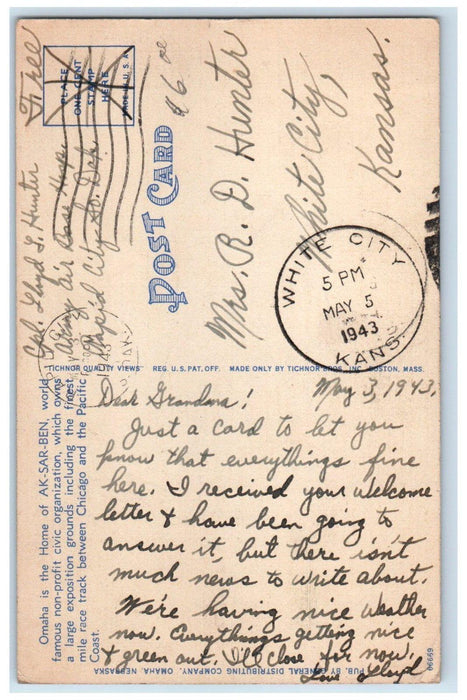 Free
PLACE
ONE CENT
STAMP
HERE
MADE IN U.S.A.
Cpl. Lloyd L. Hunter
Army Air Base Hosp.
Rapid City So. Dak.
POST CARD
Mrs. R. D. Hunter
White City,
Kansas.
WHITE CITY
5 PM
MAY 5
1943
KANS.
"TICHNOR QUALITY VIEWS" REG. U. S. PAT. OFF. MADE ONLY BY TICHNOR BROS., INC., BOSTON, MASS.
Omaha is the Home of AK-SAR-BEN, world
famous non-profit civic organization, which owns
a large exposition grounds including the finest
mile race track between Chicago and the Pacific
Coast.
May 3, 1943.
Dear Grandma!
Just a card to let you
know that everythings fine
here. I received your welcome
letter & have been going to
answer it, but there isn't
much news to write about.
We're having nice weather
now. Everythings getting nice
& green out. I'll close for now.
Love Lloyd
PUB. BY GENERAL DISTRIBUTING COMPANY, OMAHA, NEBRASKA